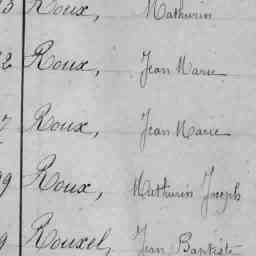 3 Roux, Mathurin
2 Roux, Jean Marie
7 Roux, Jean Marie
9 Roux, Mathurin Joseph
9 Rouxel, Jean Baptiste